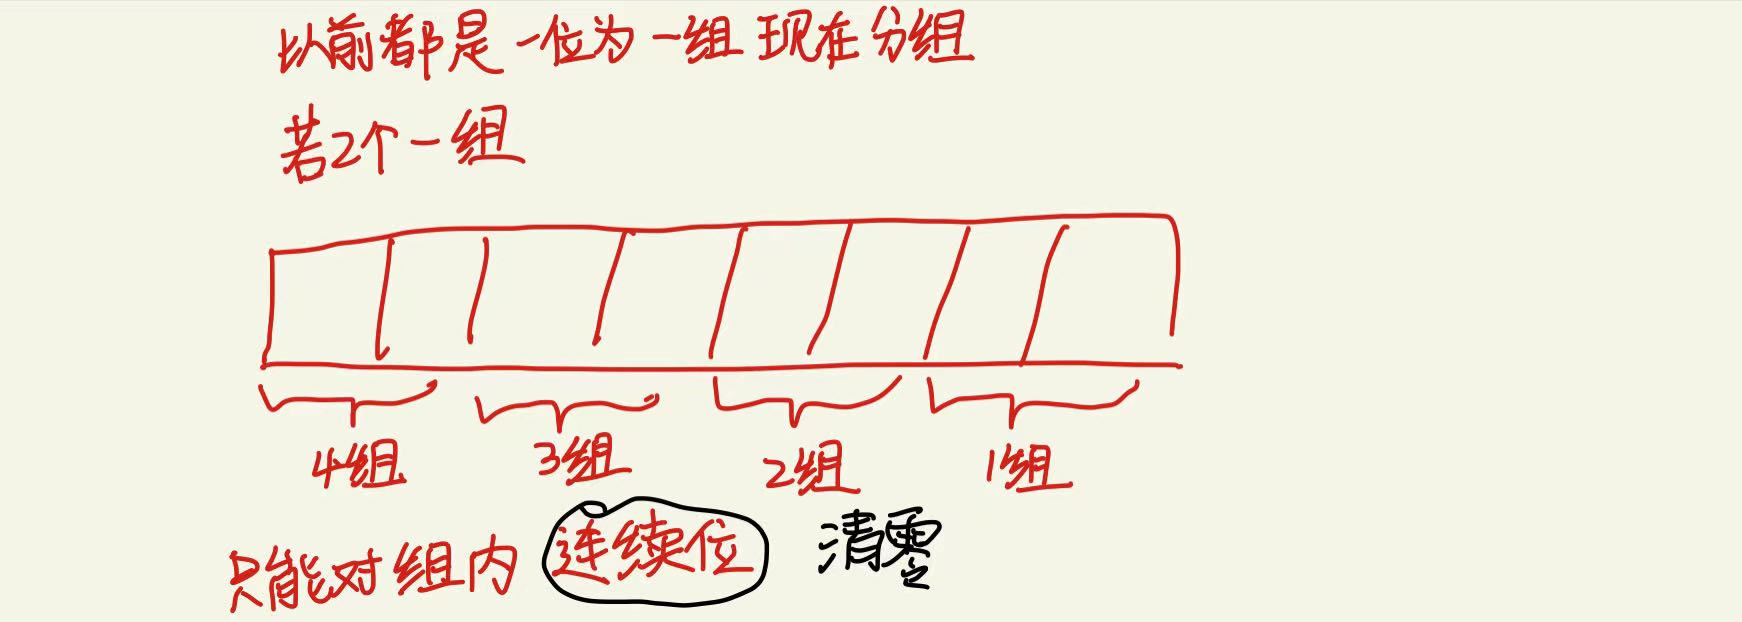 以前都是一位为一组 现在分组
若2个一组
4组 3组 2组 1组
只能对组内 连续位 清零